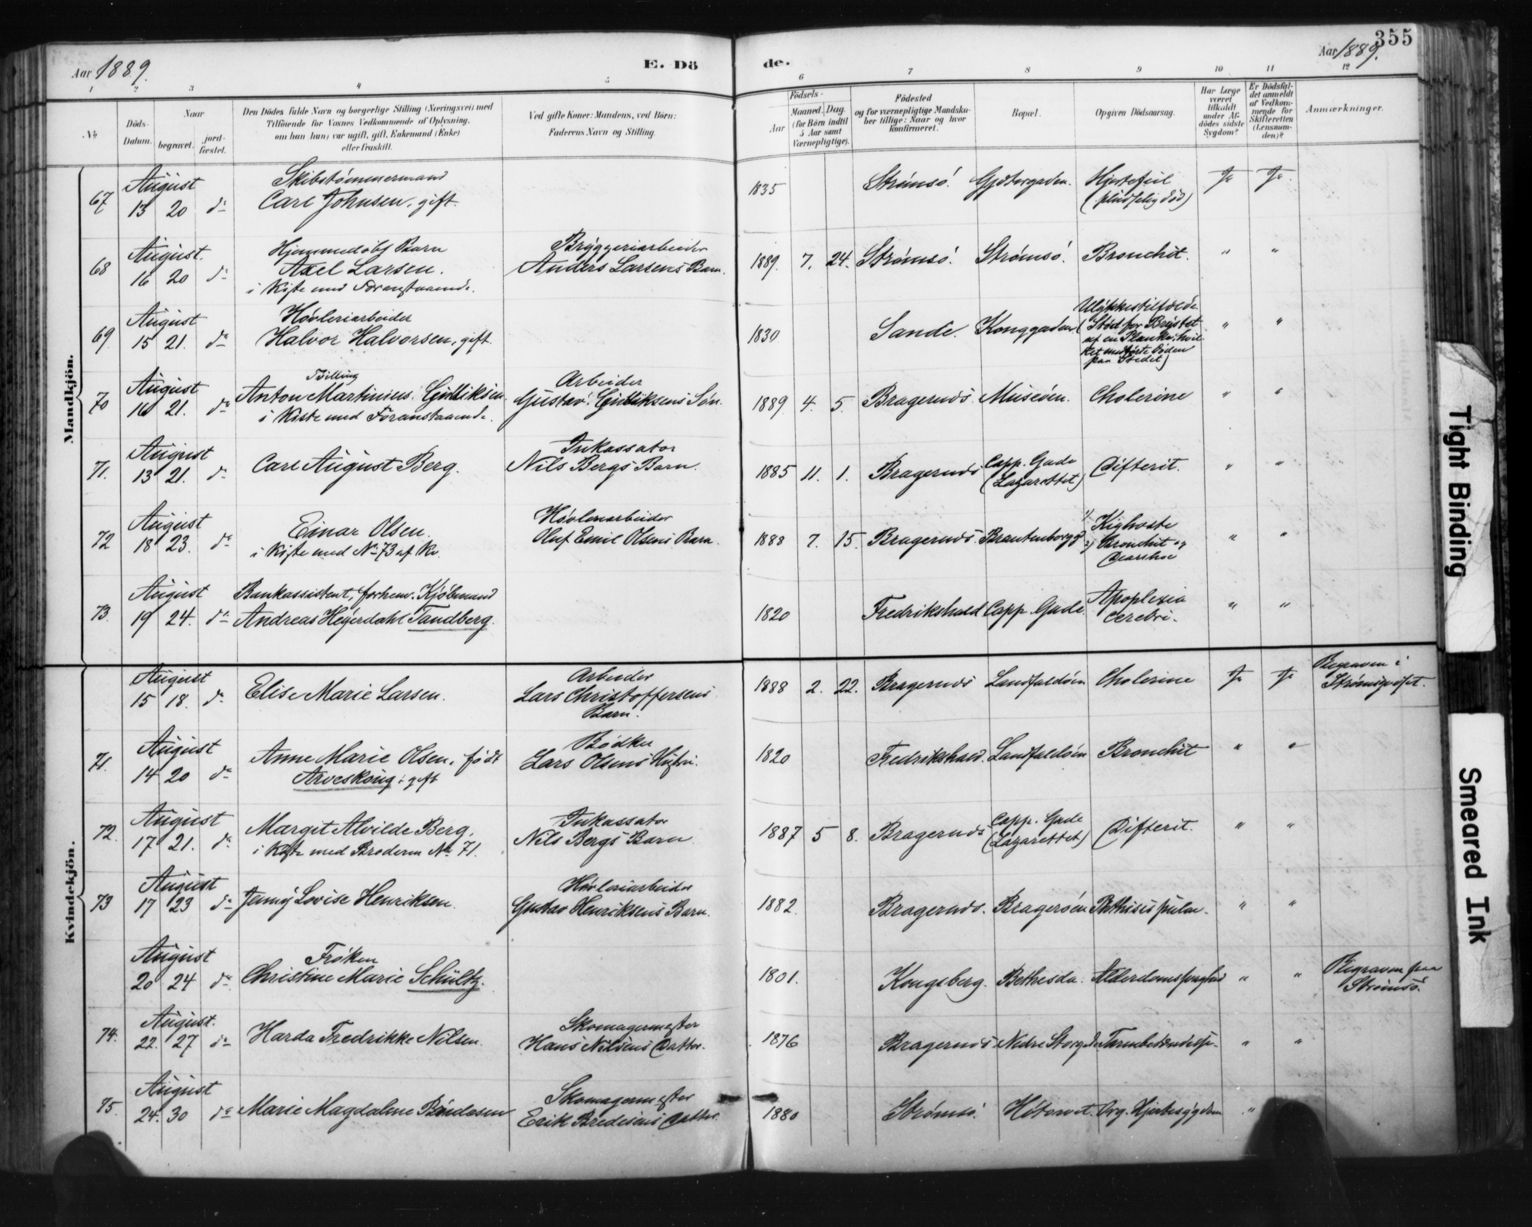 Aar 1889.
E. Dö
de.
Aar 1889.
355
1
2
3
4
5
6
7
8
9
10
11
12
No
Döds-
Datum.
Naar
begravet.
jord-
fæstet.
Den Dödes fulde Navn og borgerlige Stilling (Næringsvei) med
Tilföiende for Voxnes Vedkommende af Oplysning,
om han (hun) var ugift, gift, Enkemand (Enke)
eller fraskilt.
Ved gifte Koner: Mandens, ved Börn:
Faderens Navn og Stilling.
Födsels-
Aar
Maaned. Dag.
(for Börn indtil
5 Aar samt
Værnepligtige).
Födested
og for værnepligtige Mandska-
ber tillige: Naar og hvor
konfirmeret.
Bopæl.
Opgiven Dödsaarsag.
Har Læge
været
tilkaldt
under Af-
dödes sidste
Sygdom?
Er Dödsfal-
det anmeldt
af Vedkom-
mende for
Skifteretten
(Lensman-
den)?
Anmærkninger.
Mandkjön.
67 August 13 20 do Skibstømmermand
Carl Johnsen, gift. 1835 Strømsø. Gjetergaden. Hjertefeil
(pludselig død) Ja Ja
68 August 16 20 do Hjemmedøbt Barn
Axel Larsen.
i Kiste med Foranstaaende. Bryggeriarbeider
Anders Larsens Barn. 1889. 7. 24. Strømsø. Strømsø. Bronchit. " "
69. August 15 21. do Høvleriarbeider
Halvor Halvorsen, gift. 1830 Sande. Konggaden. Ulykkestilfælde
(Stød for Brystet
af en Planke, hvil-
ket medførte Døden
paa Stedet) " "
70 August 16 21. do Tvilling
Anton Martinius Gulliksen
i Kiste med Foranstaaende. Arbeider
Gustav Gulliksens Søn. 1889 4. 5. Bragernæs Muséen. Cholerine " "
71. August 13 21. do Carl August Berg. Inkassator
Nils Bergs Barn. 1885 11. 1. Bragernæs Capp. Gade
(Lazarettet) Difterit. " "
72 August 18 23. do Einar Olsen.
i Kiste med No 73 af Kv. Høvleriarbeider
Oluf Emil Olsens Barn. 1888 7. 15. Bragernæs Brantenborgg. 1) Kighoste
2) Bronchit og
Diarrhoe " "
73. August 19 24. do Bankassistent, forhenv. Kjøbmand
Andreas Heyerdahl Tandberg. 1820 Fredrikshald Capp. Gade. Apoplexia
cerebri. " "
Kvindekjön.
August 15 18. do Elise Marie Larsen. Arbeider
Lars Christoffersens
Barn. 1888 2. 22. Bragernæs Landfaldøen Cholerine Ja Ja Begraven i
Strømsgodset.
71. August 14 20 do Anne Marie Olsen, født
Arveskoug, gift Bødker
Lars Olsens Hustru. 1820 Fredrikshald. Landfaldøen Bronchit " "
72. August 17 21. do Margit Alvilde Berg.
i Kiste med Broderen No 71. Inkassator
Nils Bergs Barn 1887 5 8. Bragernæs Capp. Gade
(Lazarettet) Difterit. " "
73 August 17 23 do Jenny Lovise Henriksen. Høvleriarbeider
Gustav Henriksens Barn. 1882. Bragernæs. Bragerøen Phthisis pulm. " "
August 20 24 do Frøken
Christine Marie Schültz. 1801. Kongsberg. Bethesda. Alderdomssvaghed " " Begraven paa
Strømsø.
74. August. 22. 27 do Harda Fredrikke Nilsen. Skomagermester
Hans Nilsens Datter. 1876 Bragernæs Nedre Storgade Tarmbetændelse. " "
75. August 24. 30 do Marie Magdalene Bredesen Skomagermester
Erik Bredesens Datter. 1880 Strømsø. Høtorvet. Org. Hjertesygdom "
Tight Binding
Smeared Ink